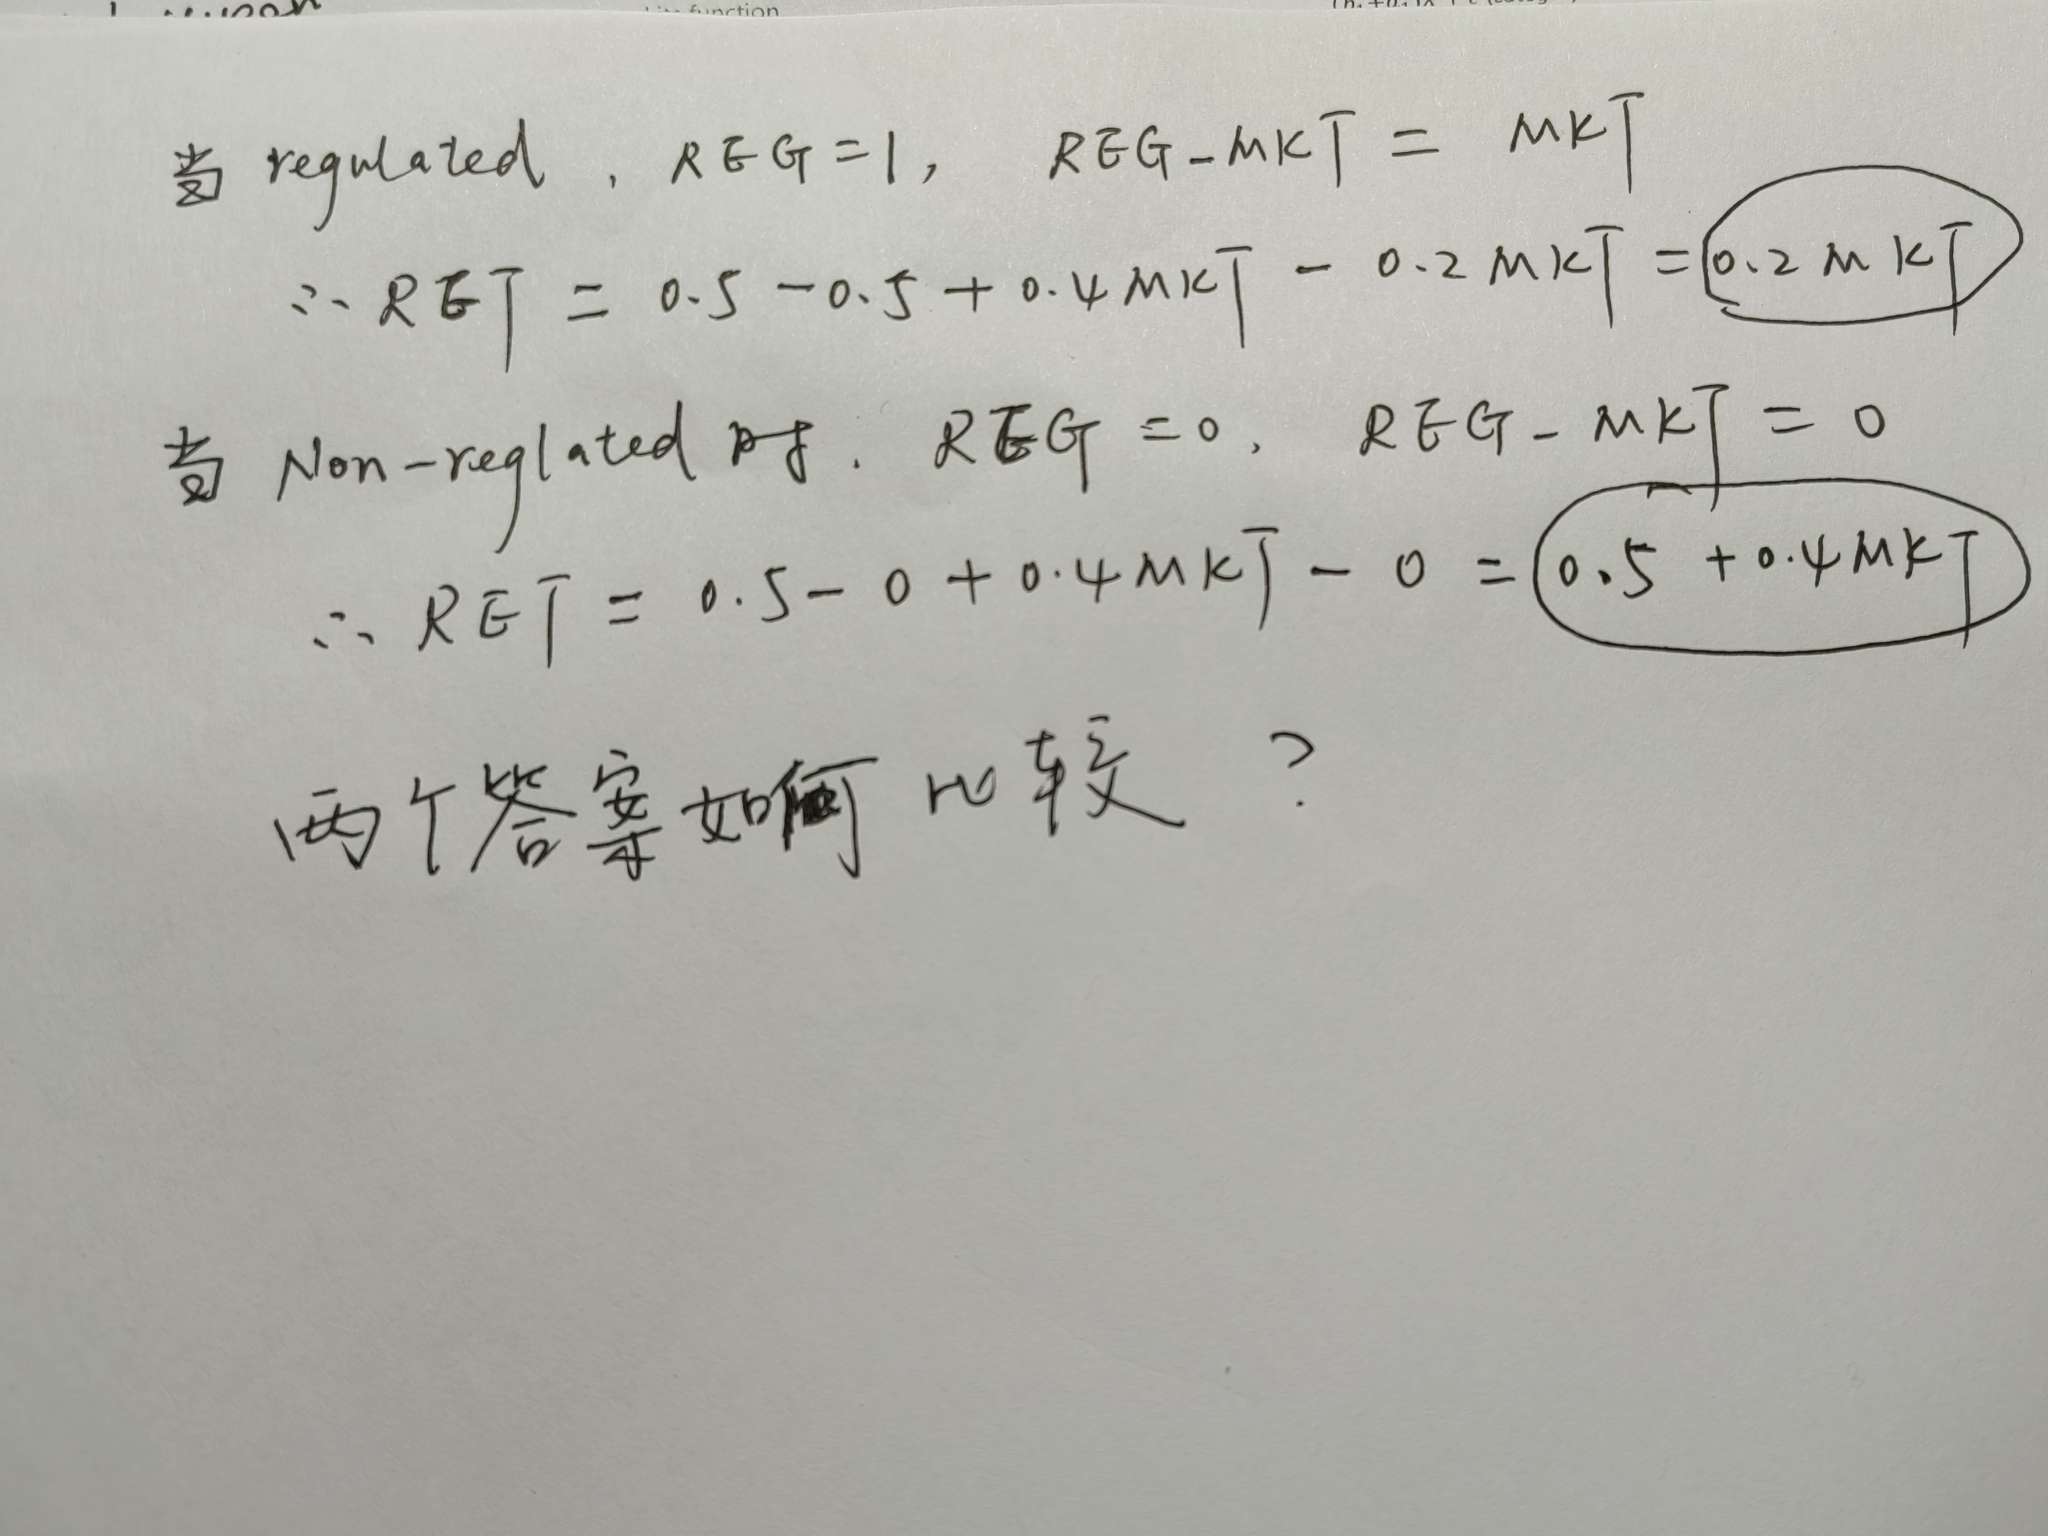 function
当 regulated, REG=1, REG-MKT = MKT
∴ RET = 0.5 - 0.5 + 0.4 MKT - 0.2 MKT = 0.2 MKT
当 Non-reglated 时. REG =0, REG-MKT = 0
∴ RET = 0.5 - 0 + 0.4 MKT - 0 = 0.5 + 0.4 MKT
两个答案如何比较?